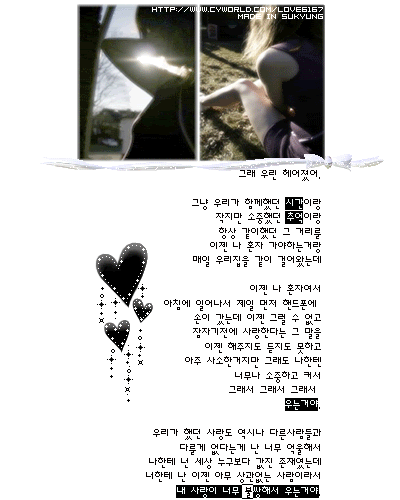 HTTP://WWW.CYWORLD.COM/LOVE6167
MADE IN SUKYUNG
그래 우린 헤어졌어.
그냥 우리가 함께했던 시간이랑
작지만 소중했던 추억이랑
항상 같이했던 그 거리를
이젠 나 혼자 가야하는거랑
매일 우리집을 같이 걸어왔는데
이젠 나 혼자여서
아침에 일어나서 제일 먼저 핸드폰에
손이 갔는데 이젠 그럴 수 없고
잠자기전에 사랑한다는 그 말을
이젠 해주지도 듣지도 못하고
아주 사소한거지만 그래도 나한텐
너무나 소중하고 커서
그래서 그래서 그래서
우는거야.
우리가 했던 사랑도 역시나 다른사람들과
다를게 없다는게 난 너무 억울해서
나한텐 넌 세상 누구보다 값진 존재였는데
너한텐 난 이젠 아무 상관없는 사람이라서
내 사랑이 너무 불쌍해서 우는거야.